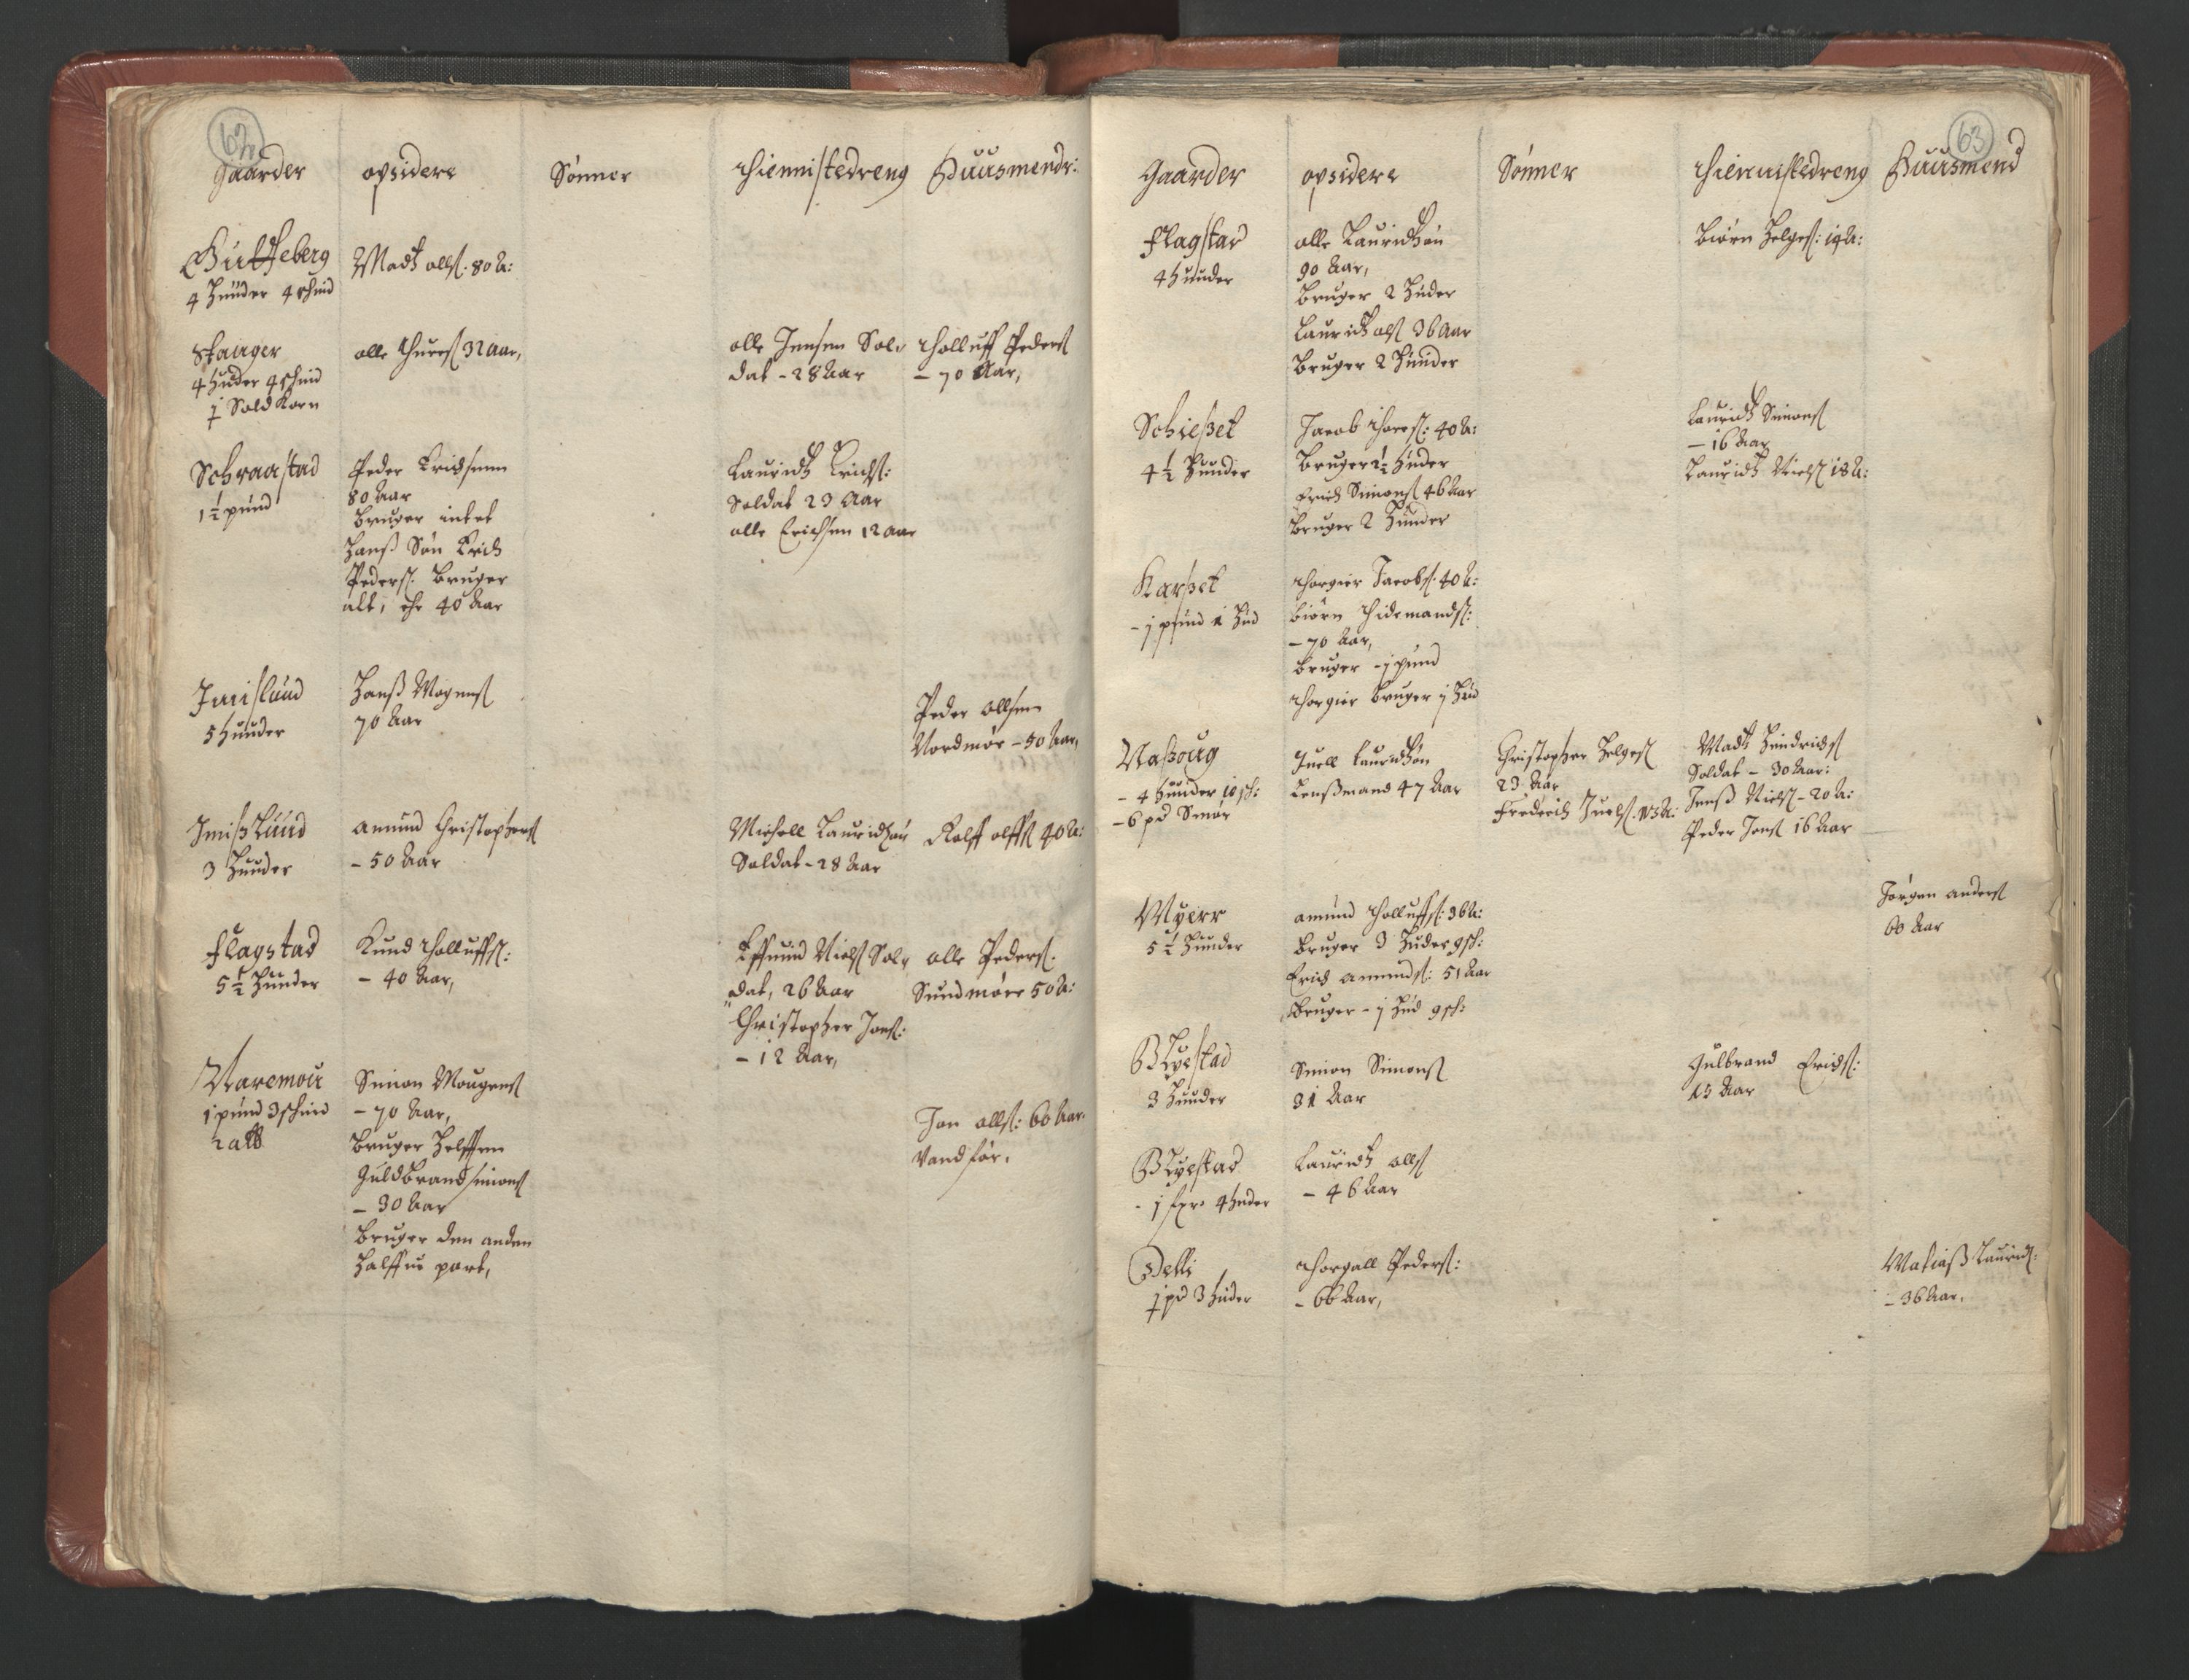 62
Gaarder opsidere Sønner thiennistedreng Huusmendr:
Gutteberg
4 Huuder 4 schind
Madtz olls: 80 A:
Stanger
4 huder 4 schind
1 Sold Korn
olle thuers 32 aar,
olle Jensen Sol-
dat - 28 Aar
tholluff Peders
- 70 Aar,
Schraastad
1½ pund
Peder Erichsenn
80 Aar
bruger intet
Hanß Søn Erich
Peders: bruger
alt, ehr 40 Aar
Lauridtz Erichs:
Soldat 23 Aar
olle Erichsen 12 aar
Imislund
5 Huuder
Hanß Mogens
70 Aar
Peder ollsen
Nordmør - 50 Aar,
Imißlund
3 Huuder
amund Christophers
- 50 Aar
Michell Lauridtzøn
Soldat - 28 Aar
Rolff olffs 40 A:
Flagstad
5½ Huuder
Knud tholluffs:
- 40 Aar,
Effuind Niels Sol-
dat, 26 Aar
Christopher Jons:
- 12 Aar,
olle Peders.
Sundmøre 50 A:
Maremou
1 pund 3 schind
Simon Mougens
- 70 Aar,
bruger Helfften
Guldbrand simons
- 30 Aar
bruger den anden
halffue part,
Jon olls: 60 Aar.
Vandfør.
63
Gaarder opsidere Sønner thiennistedreng Huusmend
Flagstad
4 Huuder
olle Lauridtzøn
90 Aar,
bruger 2 Huder
Lauridtz ols 36 Aar
bruger 2 Huuder
Biørn Helges: 19 A:
Schießet
4½ Huuder
Jacob thores: 40 A:
bruger 2½ Huder
Erich Simons 46 Aar
bruger 2 Huuder
Lauridtz Simons
- 16 Aar
Lauridtz Niels 18 A:
Karßet
- 1 pund 1 Hud
thorgier Jacobs: 40 A:
biørn thidemands:
- 70 Aar,
bruger - 1 pund
thorgier bruger 1 Hud
Naßoug
- 4 Huuder 10 sch:
- 6 pd Smør
Juell Lauridtzøn
Lensßmand 47 Aar
Christopher Helges
23 Aar
Frederich Juels
Madtz Hendrichs
Soldat - 30 Aar:
Jenß Niels - 20 A:
Peder Jons 16 Aar
Myerr
5½ Huuder
amund tholluffs: 36 A:
bruger 3 Huder 9 sch:
Erich amunds: 51 Aar
bruger - 1 Hud 9 sch:
Jørgen anders
60 Aar
Blyestad
3 Huuder
Simon Simons
31 Aar
Gulbrand Erichs:
15 Aar
Blyestad
4 huder
Lauridtz olls
- 46 Aar
1 pd 3 Huder
thorgall Peders:
- 66 Aar,
Matiaß Laurids:
- 36 Aar.